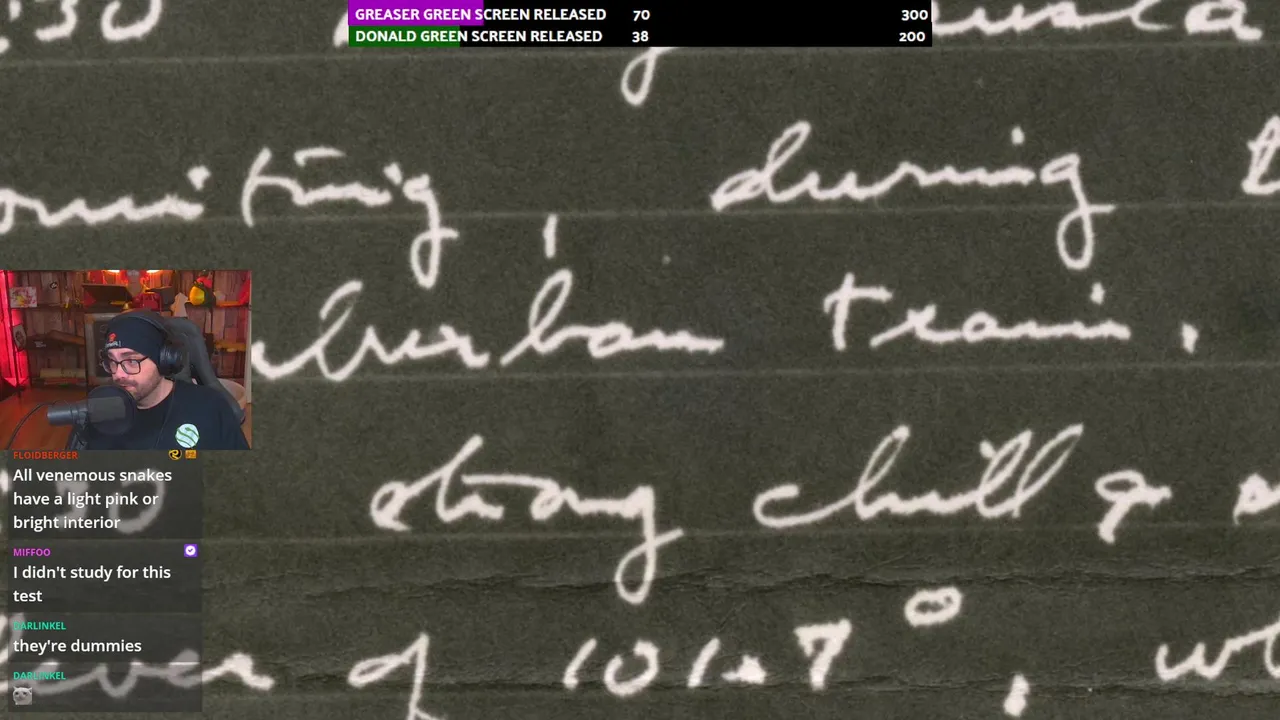 GREASER GREEN SCREEN RELEASED 70 300
DONALD GREEN SCREEN RELEASED 38 200
:30
during
urban train.
strong chill &
fever of 101.7°,
FLOIDBERGER
All venemous snakes
have a light pink or
bright interior
MIFFOO
I didn't study for this
test
DARLINKEL
they're dummies
DARLINKEL